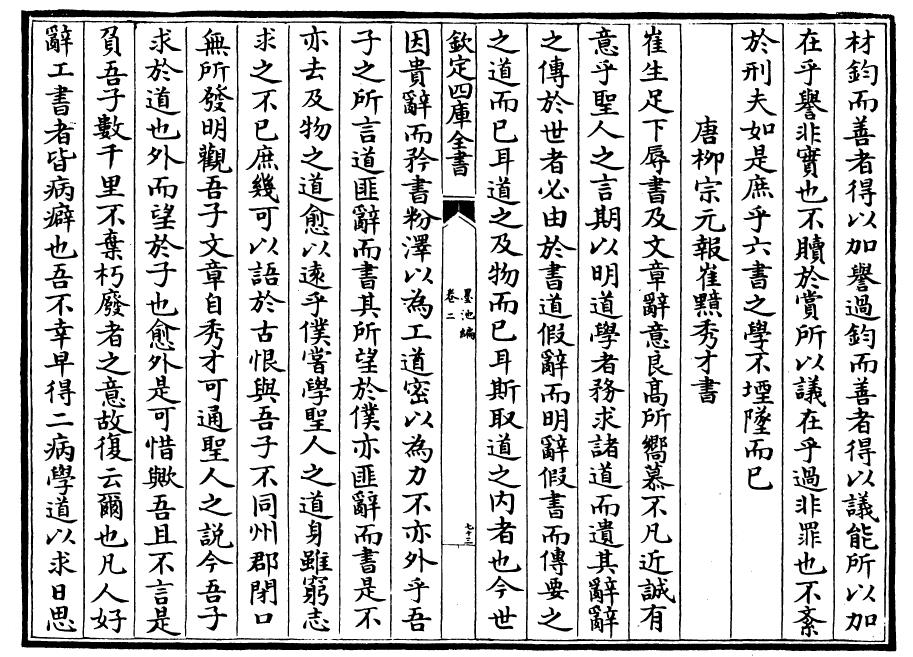 材鈞而善者得以加譽過鈞而善者得以議能所以加
在乎譽非實也不贖於賞所以議在乎過非罪也不紊
於刑夫如是庶乎六書之學不堙墜而已
唐柳宗元報崔黯秀才書
崔生足下辱書及文章辭意良髙所嚮慕不凡近誠有
意乎聖人之言期以明道學者務求諸道而遺其辭辭
之傳於世者必由於書道假辭而明辭假書而傳要之
之道而已耳道之及物而已耳斯取道之内者也今世
欽定四庫全書
墨池編
卷二
七十三
因貴辭而矜書粉澤以為工道密以為力不亦外乎吾
子之所言道匪辭而書其所望於僕亦匪辭而書是不
亦去及物之道愈以逺乎僕嘗學聖人之道身雖窮志
求之不已庶幾可以語於古恨與吾子不同州郡閉口
無所發明觀吾子文章自秀才可通聖人之説今吾子
求於道也外而望於子也愈外是可惜歟吾且不言是
負吾子數千里不棄朽廢者之意故復云爾也凡人好
辭工書者皆病癖也吾不幸早得二病學道以求日思